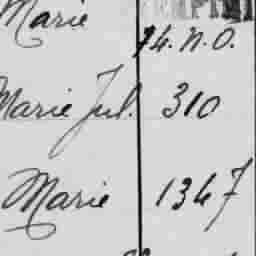 Marie
74. N. O.
Marie Jul. 310
Marie 1347